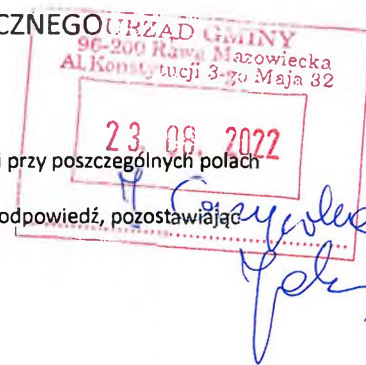 CZNEGO
URZĄD GMINY
96-200 Rawa Mazowiecka
Al. Konstytucji 3-go Maja 32
23. 08. 2022
i przy poszczególnych polach
odpowiedź, pozostawiając